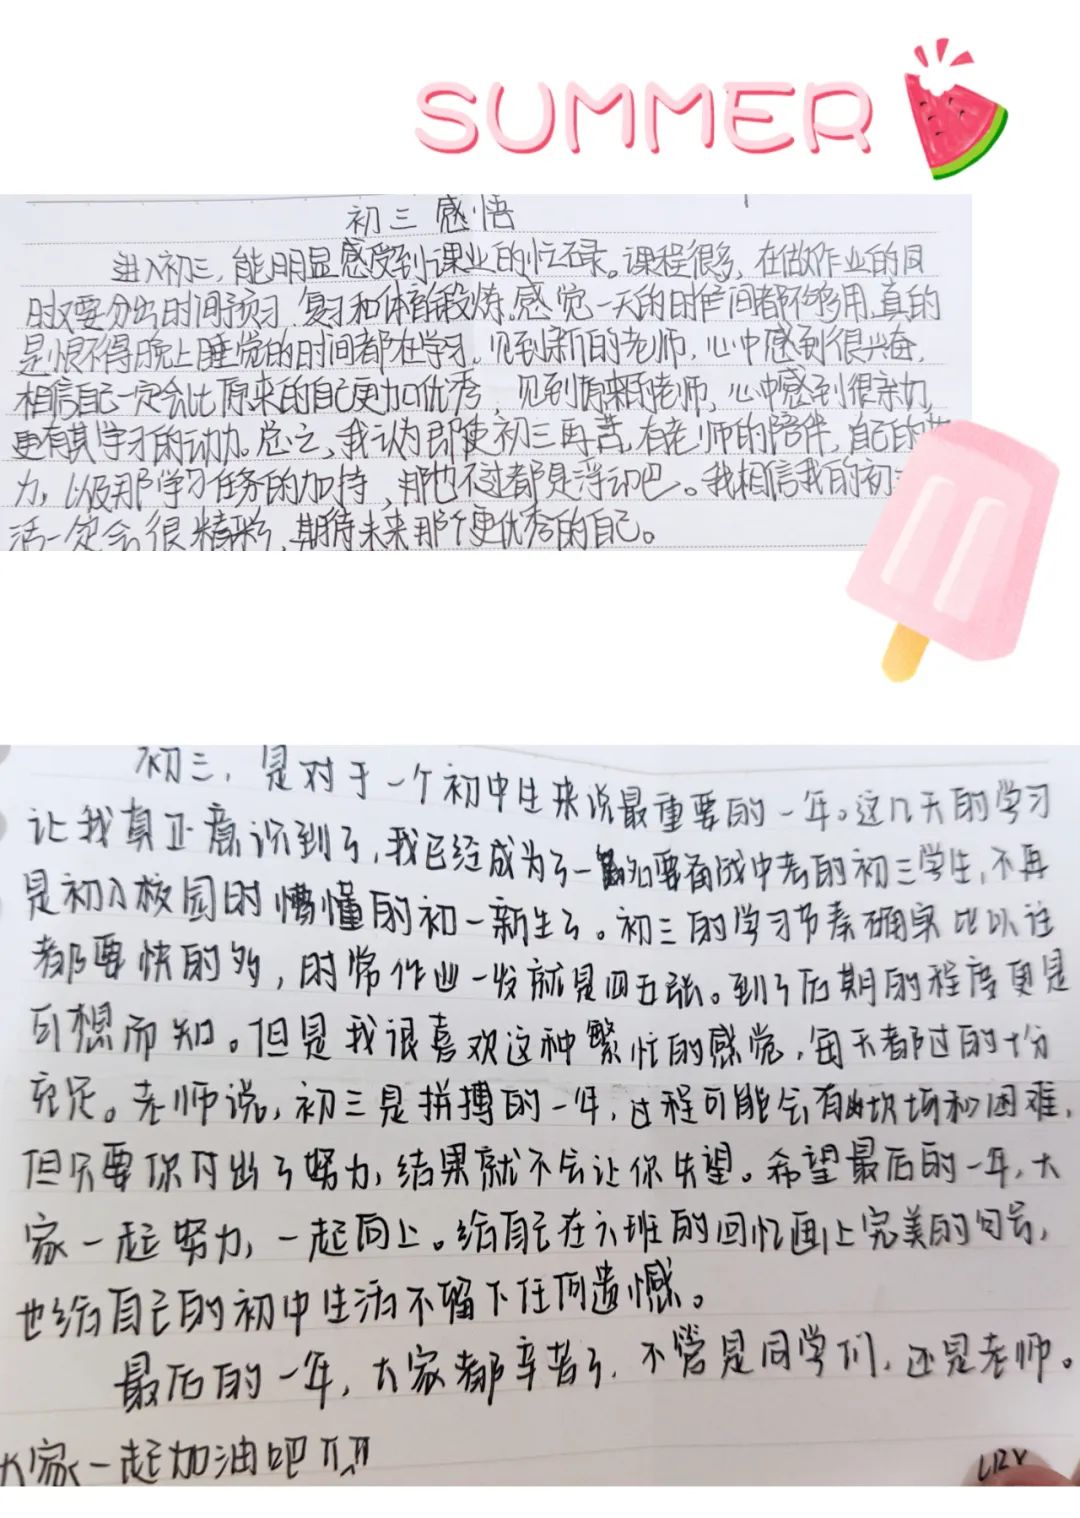 SUMMER
初三感悟
进入初三,能明显感受到课业的忙碌。课程很多,在做作业的同
时又要分出时间预习、复习和体育锻炼,感觉一天的时间都不够用,真的
是恨不得晚上睡觉的时间都在学习。见到新的老师,心中感到很兴奋,
相信自己一定会比原来的自己更加优秀,见到原来的老师,心中感到很亲切,
更有其学习的动力。总之,我认为即使初三再苦,有老师的陪伴,自己的
力,以及那学习任务的加持,那也不过都是浮云吧。我相信我的初
活一定会很精彩,期待未来那个更优秀的自己。
初三,是对于一个初中生来说最重要的一年。这几天的学习
让我真正意识到了,我已经成为了一名要备战中考的初三学生,不再
是初入校园时懵懂的初一新生了。初三的学习节奏确实比以往
都要快的多,时常作业一发就是四五张。到了后期的程度更是
可想而知。但是我很喜欢这种繁忙的感觉,每天都过的十分
充足。老师说,初三是拼搏的一年,过程可能会有坎坷和困难,
但只要你付出了努力,结果就不会让你失望。希望最后的一年,大
家一起努力,一起向上。给自己在六班的回忆画上完美的句号,
也给自己的初中生活不留下任何遗憾。
最后的一年,大家都辛苦了,不管是同学们,还是老师。
大家一起加油吧!!